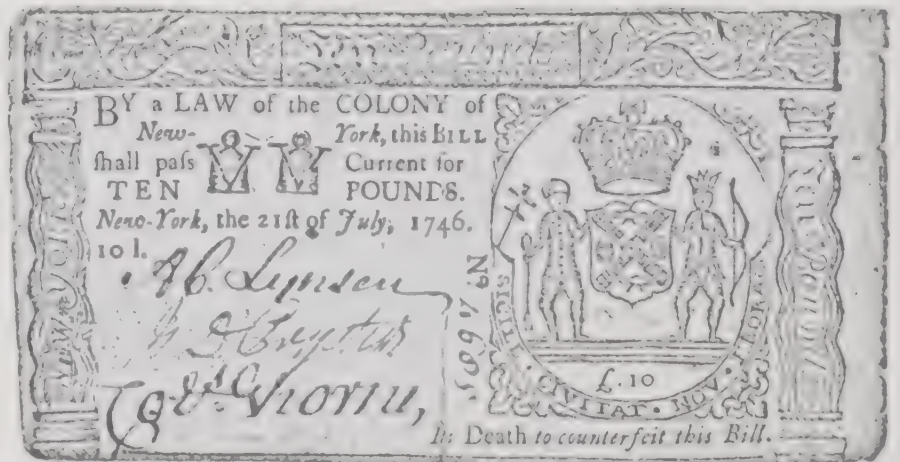 Ten Pounds
BY a LAW of the COLONY of
New-York, this BILL
ſhall paſs Current for
TEN POUNDS.
New-York, the 21ſt of July, 1746.
10 l.
Lynsen
No. 4605
SIGILL CIVITAT · NOV · EBORAC
£. 10
NEW YORK
Ten Pounds
'tis Death to counterfeit this Bill.